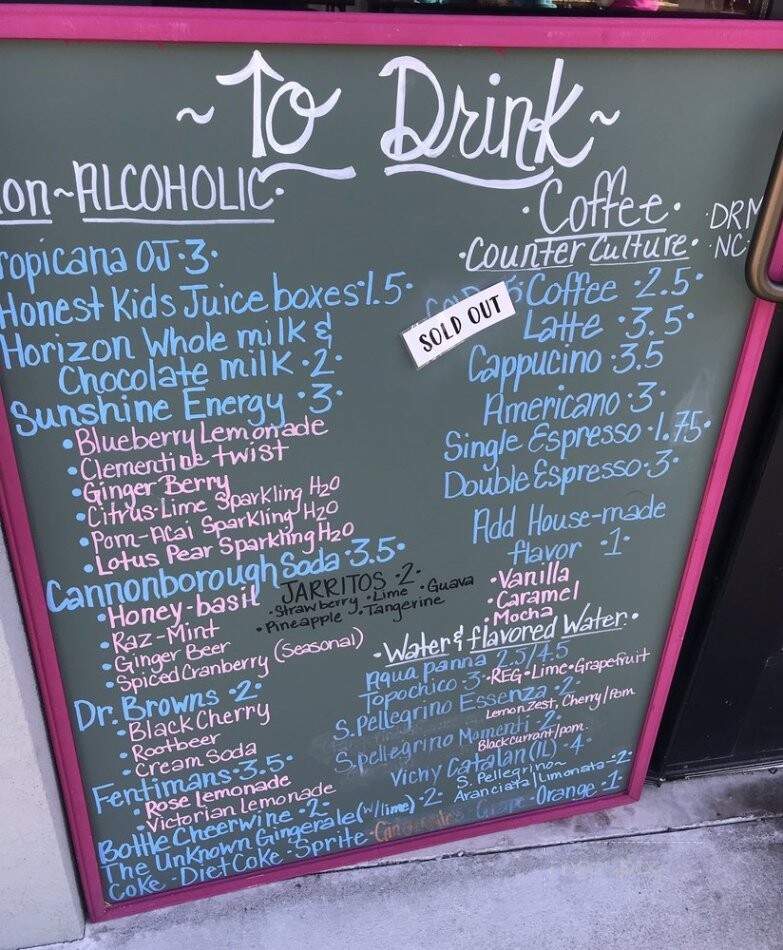 ~ To Drink ~
on~ALCOHOLIC·
ropicana OJ·3·
Honest Kids Juice boxes·1.5·
Horizon Whole milk &
Chocolate milk·2·
Sunshine Energy·3·
·Blueberry Lemonade
·Clementine twist
·Ginger Berry
·Citrus-Lime Sparkling H2O
·Pom-Acai Sparkling H2O
·Lotus Pear Sparkling H2O
Cannonborough Soda·3.5·
·Honey-basil
·Raz-Mint
·Ginger Beer
·Spiced Cranberry (Seasonal)
JARRITOS·2·
·Strawberry ·Lime ·Guava
·Pineapple ·Tangerine
Dr. Browns·2·
·Black Cherry
·Rootbeer
·Cream Soda
Fentimans·3.5·
·Rose lemonade
·Victorian Lemonade
Bottle Cheerwine·2·
The Unknown Gingerale (w/lime)·2·
Coke·Diet Coke·Sprite· Grape·Orange·1·
·Coffee·
·Counter Culture·
·DRM
·NC·
SOLD OUT
Coffee·2.5·
Latte·3.5·
Cappucino·3.5
Americano·3·
Single Espresso·1.75·
Double Espresso·3·
Add House-made
flavor·1·
·Vanilla
·Caramel
·Mocha
·Water & flavored Water·
Aqua panna 2.5/4.5
Topochico·3·REG·Lime·Grapefruit
S. Pellegrino Essenza·2·
Lemon Zest, Cherry/Pom
S. pellegrino Momenti·2·
Blackcurrant/pom
Vichy Catalan (1L)·4·
S. Pellegrino~
Aranciata/Limonata·2·